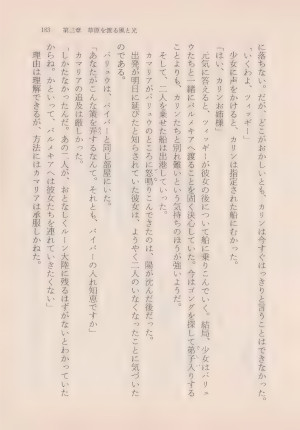 163　第三章　草原を渡る風と光
に落ちない。だが、どこがおかしいとも、カリンは今すぐはっきりと言うことはできなかった。
「いくわよ、フィッギー」
少女に声をかけると、カリンは指定された船にむかった。
「はい、カリンお姉様」
元気に答えると、フィッギーが彼女の後について船に乗りこんでいく。結局、少女はバリュ
ウたちと一緒にパルメキアへ渡ることを固く決心していた。今はゴングを探して弟子入りする
ことよりも、カリンたちと別れ難いという気持ちのほうが強いようだ。
そして、二人を乗せた船は出港していった。
カマリアがバリュウのところに怒鳴りこんできたのは、陽が沈んだ後だった。
出発が明日に延びたと知らされていた彼女は、ようやく二人のいなくなったことに気づいた
のだ。
バリュウは、バイパーと同じ部屋にいた。
「あなたがこんな策を弄するなんて。それとも、バイパーの入れ知恵ですか」
カマリアの追及は厳しかった。
「しかたなかったんだ。あの二人が、おとなしくルーン大陸に残るはずがないとわかっていた
からね。かといって、パルメキアへは彼女たちを連れていきたくない」
理由は理解できるが、方法にはカマリアは承服しかねた。